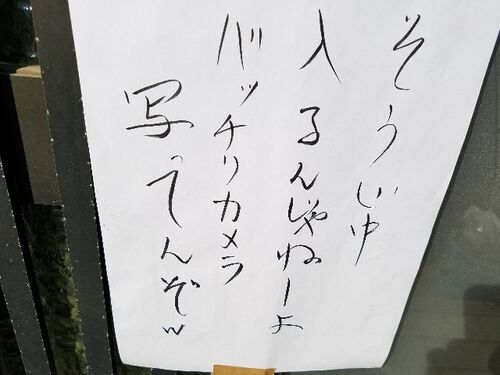 そうじ中
入るんじゃねーよ
バッチリカメラ
写ってんぞw